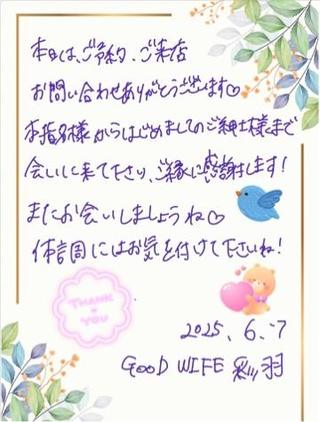 本日は、ご予約、ご来店
お問い合わせありがとうございます♡
本指名様からはじめましてのご紳士様まで
会いに来て下さり、ご縁に感謝します!
またお会いしましょうね♡
体調にはお気を付けて下さいね!
THANK
YOU
2025.6.7
GOOD WIFE 彩羽